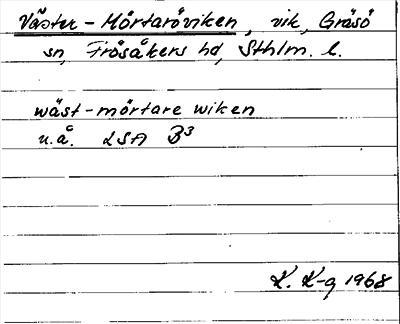 Väster-Mörtaröviken, vik, Gräsö
sn, Frösåkers hd, Sthlm. l.
wäst-mörtare wiken
u.å. LSA B3
K. K-g 1968